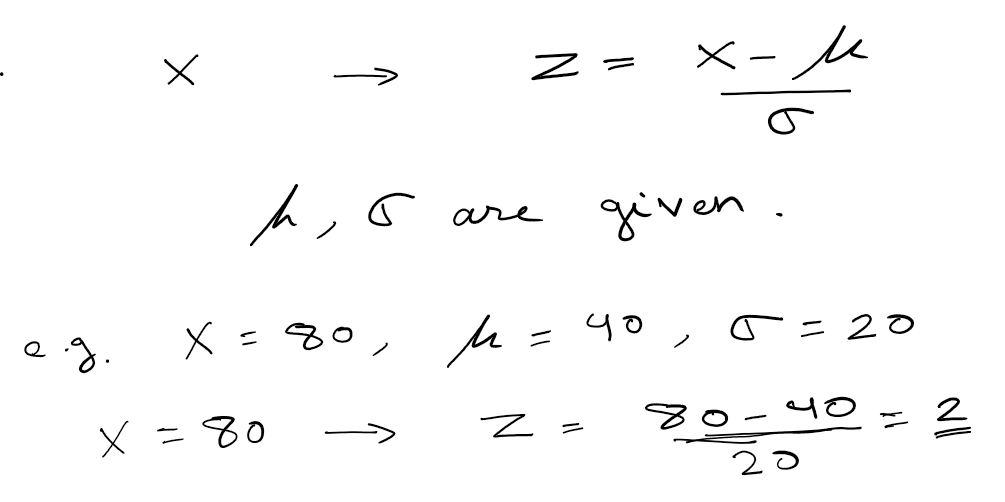 . x → z = (x - μ)/σ
μ, σ are given.
e.g. x = 80, μ = 40, σ = 20
x = 80 → z = (80 - 40)/20 = 2